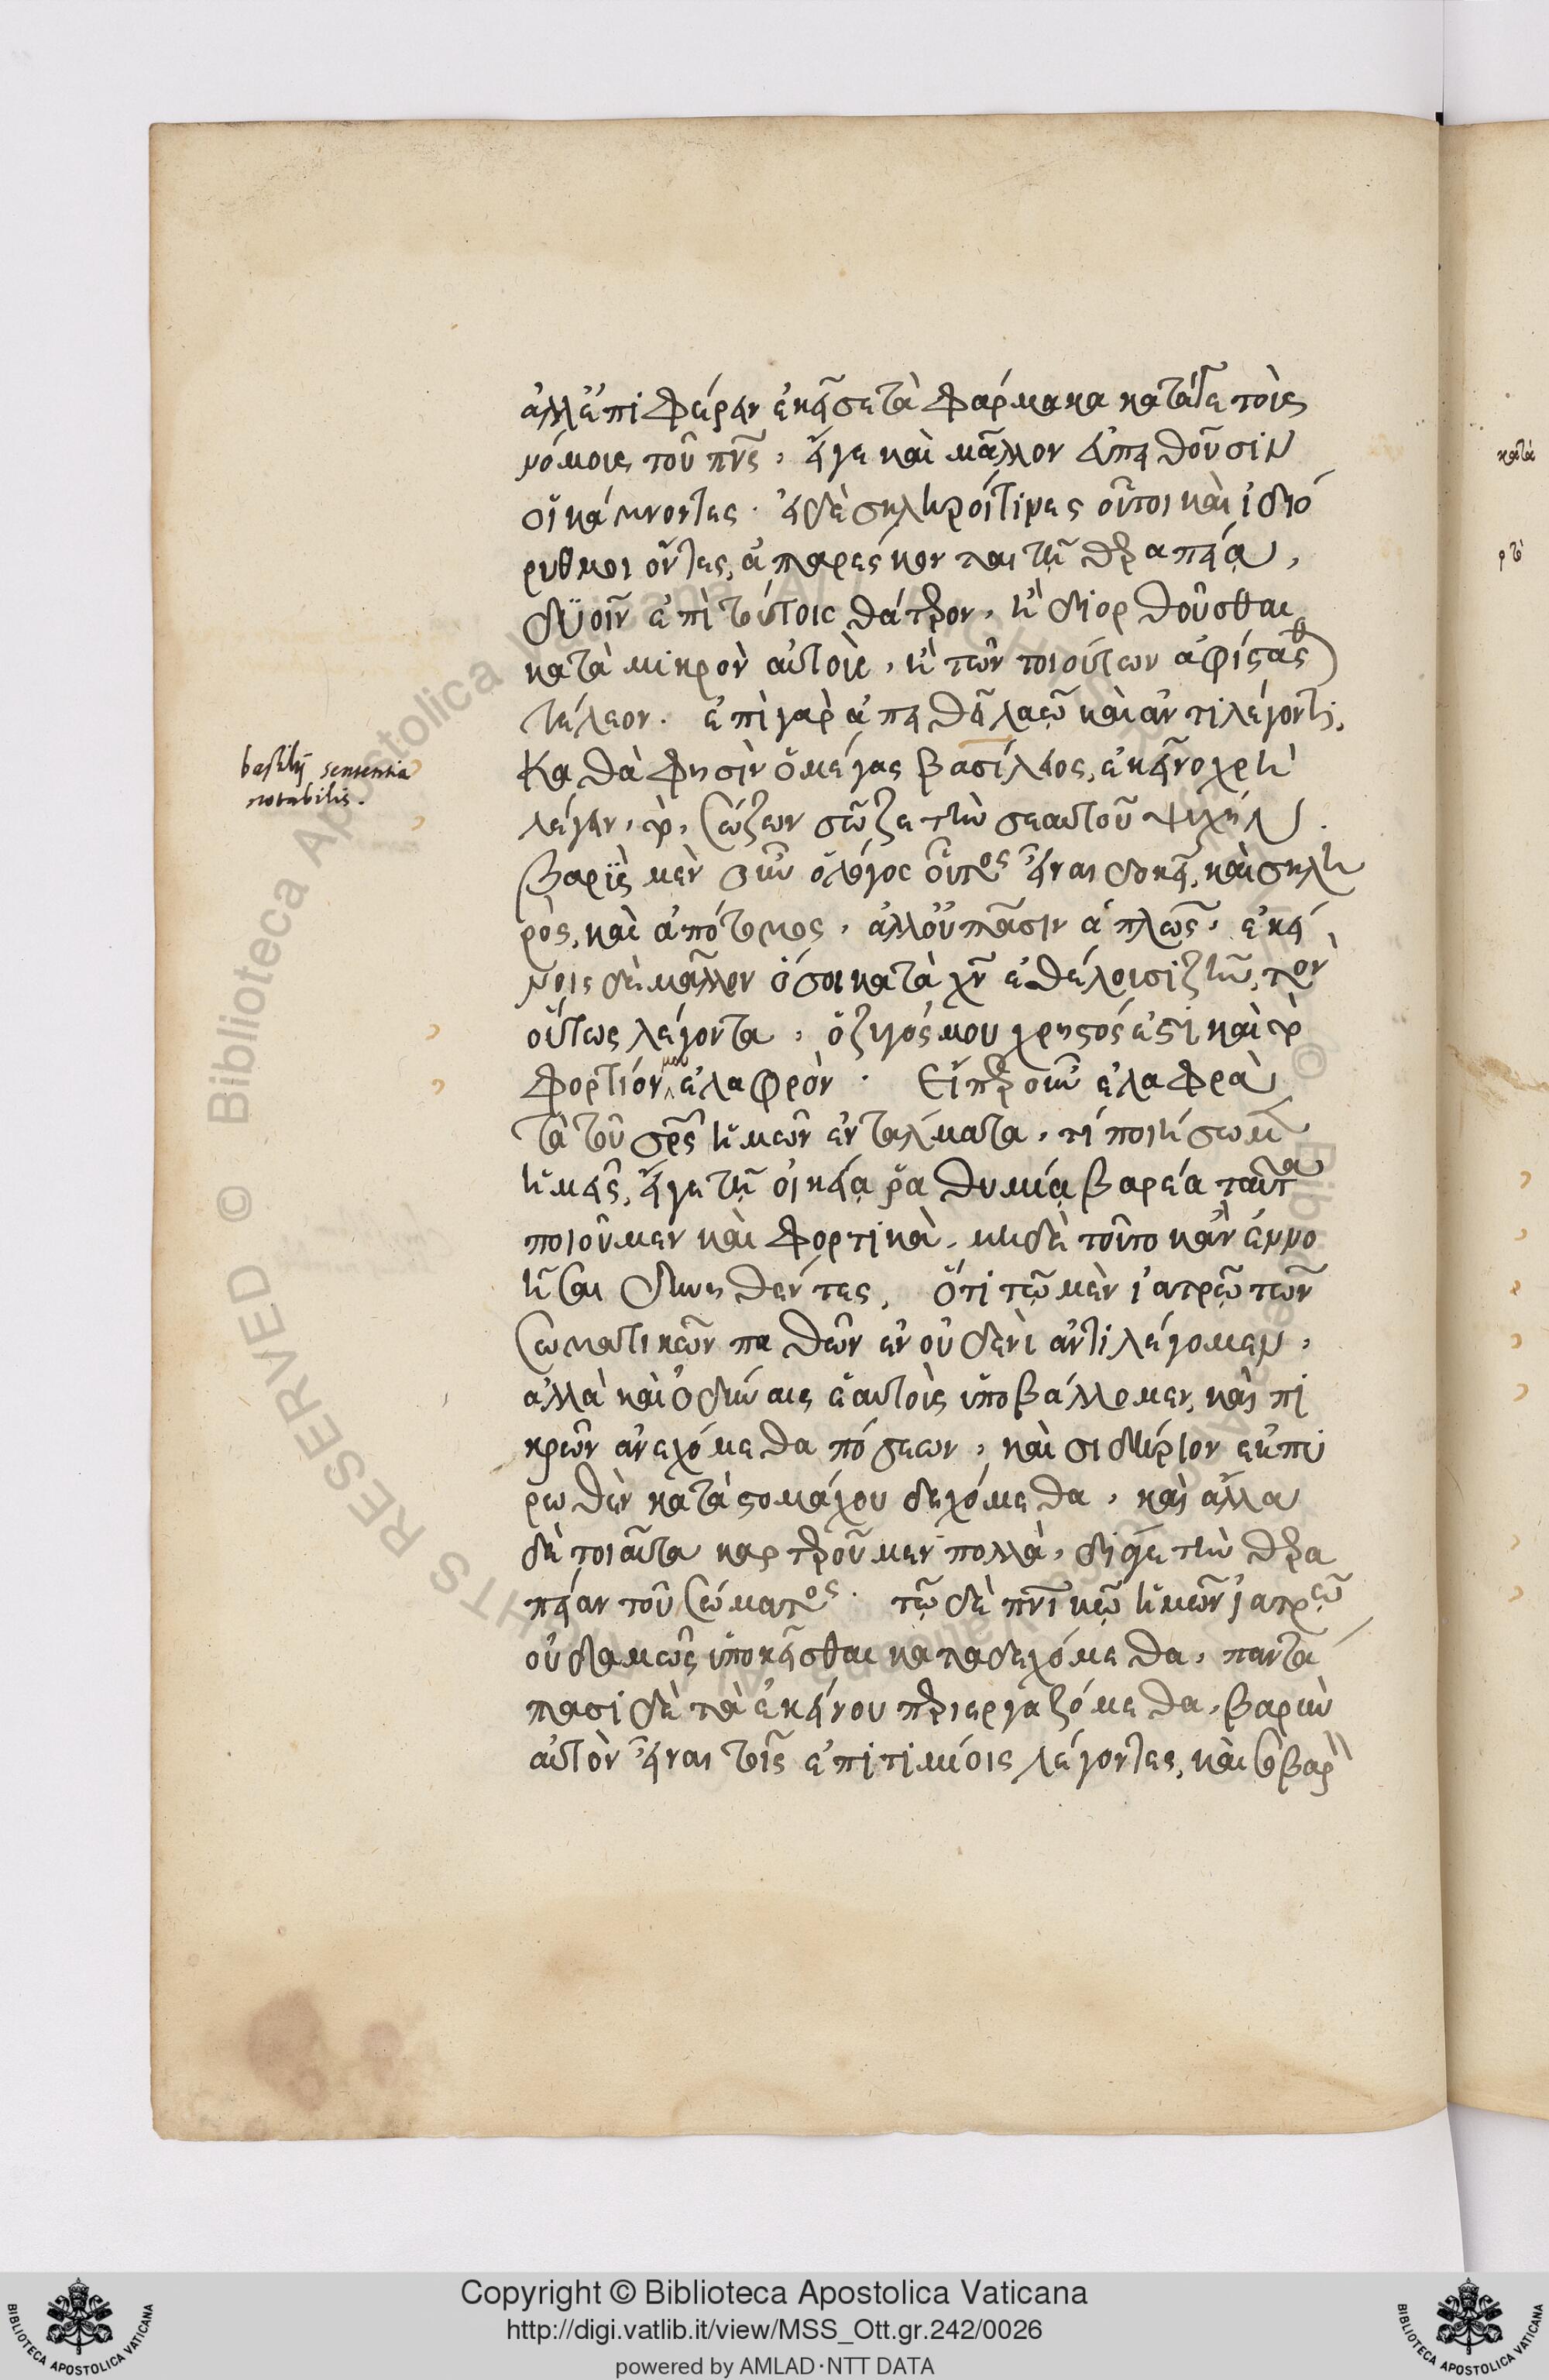 ἀλλ' ἐπιφέρειν ἐκεῖσε τὰ φάρμακα κατά γε τοὺς
νόμους τοῦ πνς, εἴγε καὶ μᾶλλον εὐπειθοῦσιν
οἱ κάμνοντες. εἰ δὲ σκληροί τινες οὗτοι καὶ ἰδιό
ρυθμοι ὄντες, ἀπαρέσκονται τῇ θεραπείᾳ,
δυοῖν ἐπὶ τούτοις θάτερον, ἢ διορθοῦσθαι
κατὰ μικρὸν αὐτοὺς, ἢ τῶν τοιούτων ἀφίστασθ
τέλεον. ἐπὶ γὰρ ἀπειθεῖ λαῷ καὶ ἀντιλέγοντι,
Καθὰ φησὶν ὁ μέγας βασίλειος, ἐκεῖνο χρὴ
basilij sententia
notabilis.
λέγειν, τὸ, σώζων σῶζε τὴν σεαυτοῦ ψυχήν.
βαρὺς μὲν οὖν ὁ λόγος οὗτος εἶναι δοκεῖ, καὶ σκλη
ρὸς, καὶ ἀπότομος, ἀλλ' οὐ πᾶσιν ἁπλῶς, ἐκεί
νοις δὲ μᾶλλον ὅσοι κατὰ χν ἐθέλουσι ζῆν, τὸν
οὕτως λέγοντα, ὁ ζυγός μου χρηστός ἐστι καὶ τὸ
φορτίον μου ἐλαφρὸν. Εἴπερ οὖν ἐλαφρὰ
τὰ τοῦ σρς ἡμῶν ἐντάλματα, τί ποιήσωμεν
ἡμεῖς, εἴγε τῇ οἰκείᾳ ῥαθυμίᾳ βαρέα ταῦτα
ποιοῦμεν καὶ φορτικὰ, μηδὲ τοῦτο κἂν ἐννο
ῆσαι δυνηθέντες, ὅτι τῷ μὲν ἰατρῷ τῶν
σωματικῶν παθῶν ἐν οὐδενὶ ἀντιλέγομεν,
ἀλλὰ καὶ ὀδύναις ἑαυτοὺς ὑποβάλλομεν, καὶ πι
κρῶν ἀνεχόμεθα πόσεων, καὶ σιδήριον ἐκπυ
ρωθὲν κατὰ στομάχου δεχόμεθα, καὶ ἄλλα
δὴ τοιαῦτα καρτεροῦμεν πολλὰ, διά γε τὴν θερα
πείαν τοῦ σώματος. τῷ δὲ πνικῷ ἡμῶν ἰατρῷ
οὐδαμῶς ὑποκεῖσθαι καταδεχόμεθα, παντά
πασι δὲ τὰ ἐκείνου περιεργαζόμεθα, βαρὺν
αὐτὸν εἶναι τοῖς ἐπιτιμίοις λέγοντες, καὶ
Copyright © Biblioteca Apostolica Vaticana
http://digi.vatlib.it/view/MSS_Ott.gr.242/0026
powered by AMLAD·NTT DATA